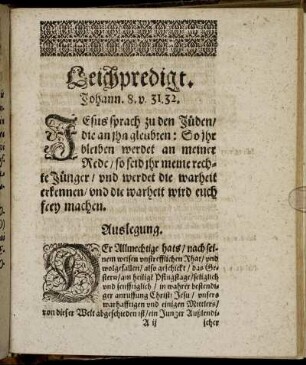 Leichpredigt.
Johann. 8. v. 31. 32.
JEsus sprach zu den Jüden/
die an jhn gleubten: So jhr
bleiben werdet an meiner
Rede/ so seid jhr meine rech-
te Jünger/ vnd werdet die warheit
erkennen/ vnd die warheit wird euch
frey machen.
Auslegung.
DEr Allmechtige hats/ nach sei-
nem weisen vnstrefflichen Rhat/ vnd
wolgefallen/ also geschickt/ das Ge-
stern/ am heilige Pfingstage/ seliglich
vnd senfftiglich/ in wahrer bestendi-
ger anruffung Christi Jesu/ vnsers
warhafftigen vnd einigen Mittlers/
von dieser Welt abgeschieden ist/ ein Junger Auslendi-
A ij scher